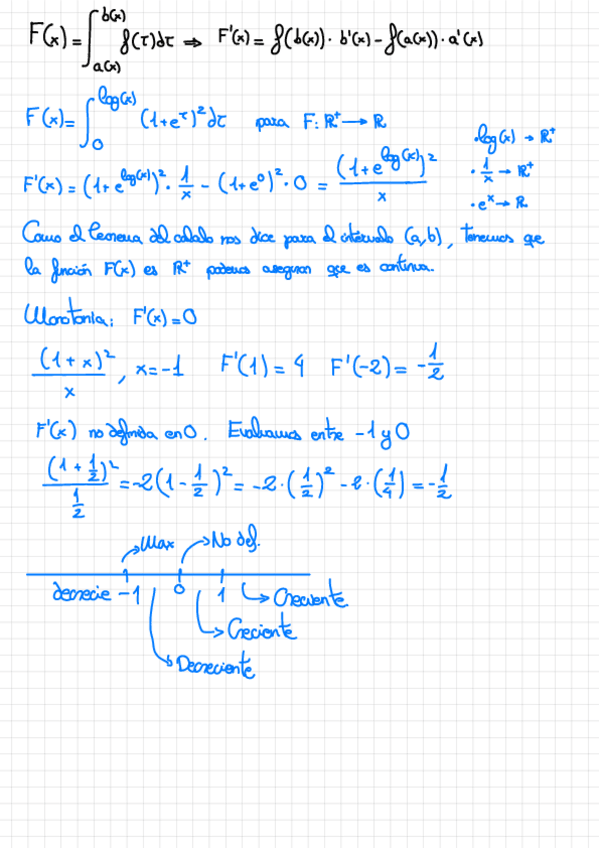 F(x) = ∫_{a(x)}^{b(x)} f(τ)dτ ⇒ F'(x) = f(b(x)) · b'(x) - f(a(x)) · a'(x)
F(x) = ∫_0^{log(x)} (1+e^τ)² dτ para F: ℝ⁺ → ℝ
· log(x) → ℝ⁺
F'(x) = (1+e^{log(x)})² · 1/x - (1+e⁰)² · 0 = (1+e^{log(x)})²/x
· 1/x → ℝ⁺
· eˣ → ℝ
Como el teorema del cálculo nos dice para el intervalo (a,b), tenemos que
la función F(x) es ℝ⁺ podemos asegurar que es continua.
Monotonía: F'(x) = 0
(1+x)²/x , x = -1 F'(1) = 4 F'(-2) = -1/2
F'(x) no definida en 0. Evaluamos entre -1 y 0
(1+1/2)²/(1/2) = -2(1-1/2)² = -2·(1/2)² -2·(1/4) = -1/2
Max No def.
decrecie -1 0 1 Creciente
Creciente
Decreciente